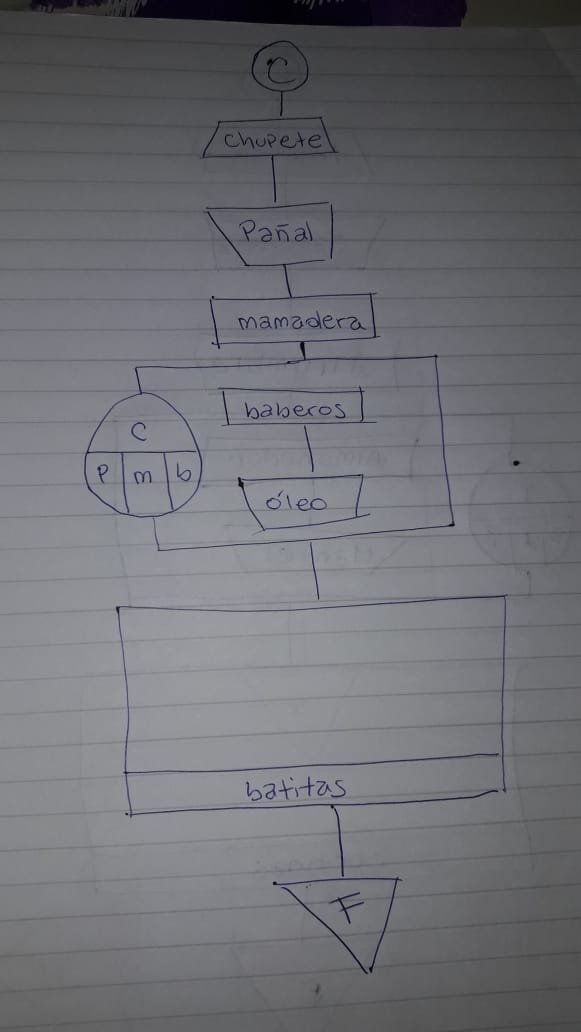 C
chupete
Pañal
mamadera
baberos
C
P m b
óleo
batitas
F